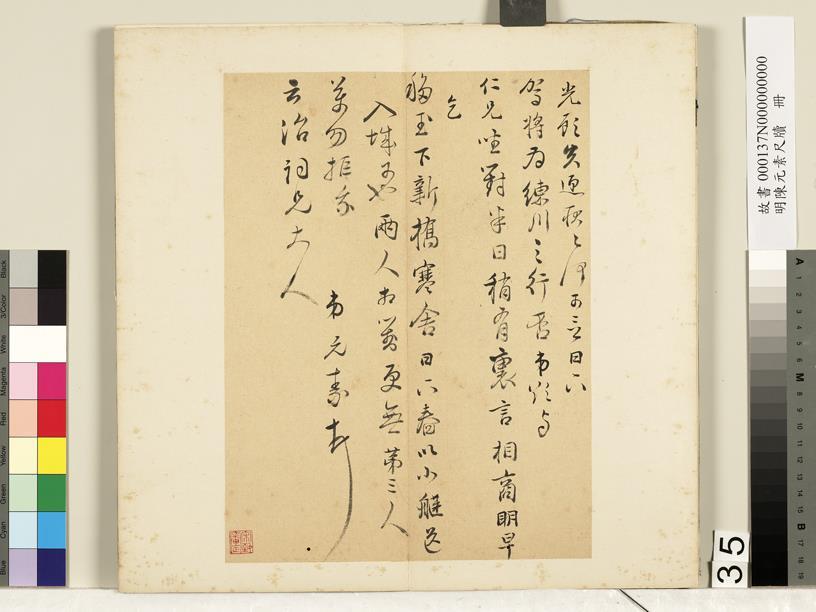 光顧失迎歉歉何可言日下
駕將為練川之行否弟欲与
仁兄坐對半日稍有裏言相商明早
乞
移玉下新橋寒舍日下舂以小艇送
入城可也兩人相商更無第三人
萬勿拒我
弟元素
云治詞兄大人
故書 000137N000000000
明陳元素尺牘 冊
35
Black
3/Color
White
Magenta
Red
Yellow
Green
Cyan
Blue
A 1 2 3 4 5 6 M 8 9 10 11 12 13 14 15 B 17 18 19